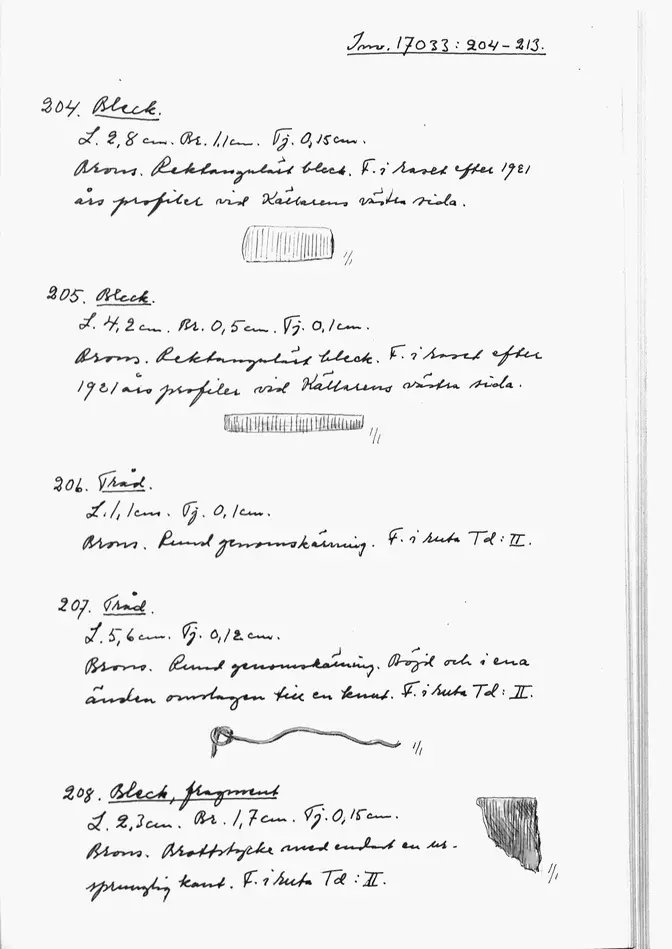 Inv. 17033:204-213.
204. Bleck.
L. 2,8 cm. Br. 1,1 cm. Tj. 0,15 cm.
Brons. Rektangulärt bleck. F. i raset efter 1921
års profiler vid Källarens västra sida.
1/1
205. Bleck.
L. 4,2 cm. Br. 0,5 cm. Tj. 0,1 cm.
Brons. Rektangulärt bleck. F. i raset efter
1921 års profiler vid Källarens västra sida.
1/1
206. Tråd.
L. 1,1 cm. Tj. 0,1 cm.
Brons. Rund genomskärning. F. i ruta Td: II.
207. Tråd.
L. 5,6 cm. Tj. 0,12 cm.
Brons. Rund genomskärning. Böjd och i ena
änden omslagen till en knut. F. i ruta Td: II.
1/1
208. Bleck, fragment
L. 2,3 cm. Br. 1,7 cm. Tj. 0,15 cm.
Brons. Brottstycke med endast en ur-
sprunglig kant. F. i ruta Td: II.
1/1